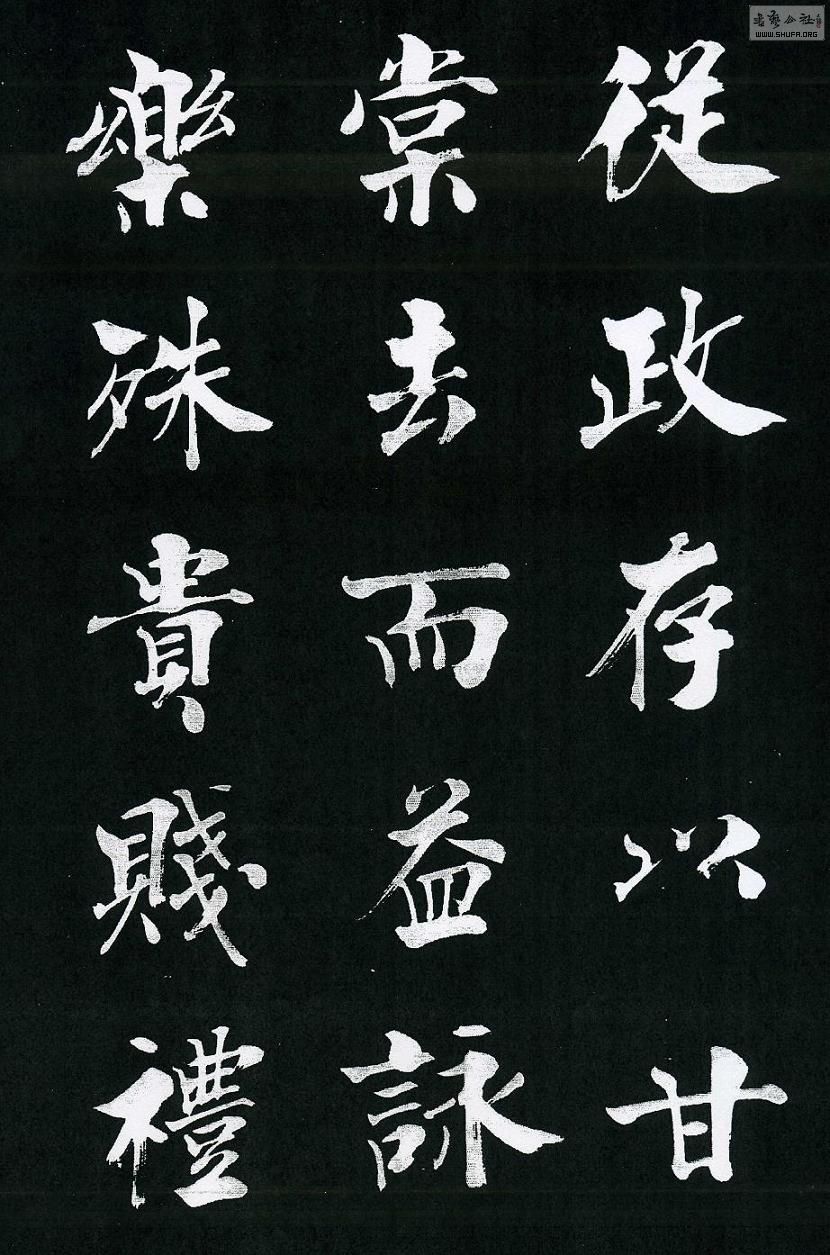 從政存以甘
棠去而益詠
樂殊貴賤禮
WWW.SHUFA.ORG